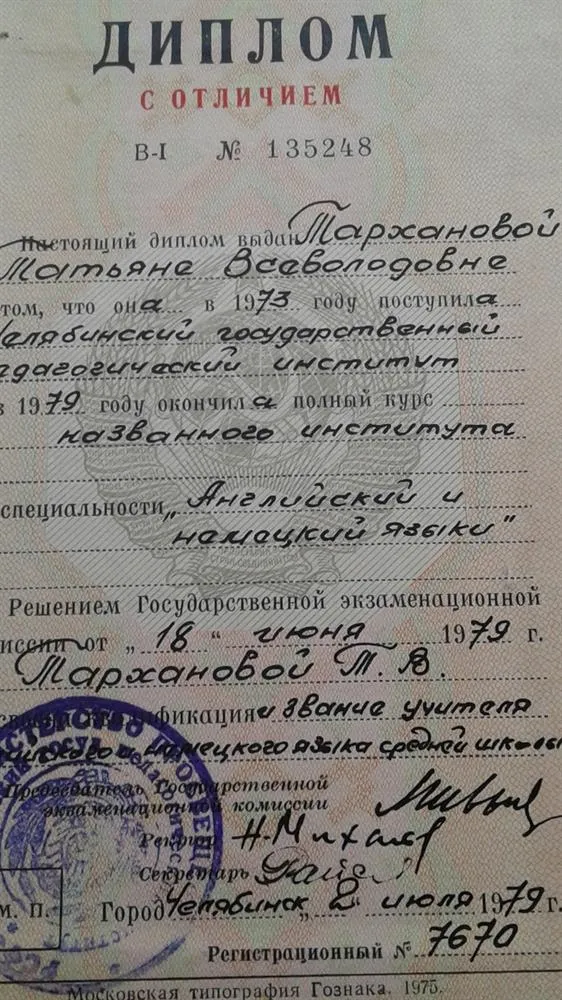 ДИПЛОМ
С ОТЛИЧИЕМ
В-I № 135248
Настоящий диплом выдан Тархановой
Татьяне Всеволодовне
том, что она в 1973 году поступила
Челябинский государственный
едагогический институт
в 1979 году окончила полный курс
названного института
специальности „Английский и
немецкий языки"
Решением Государственной экзаменационной
миссии от „18" июня 1979 г.
Тархановой Т. В.
квалификация и звание учителя
немецкого языка средней школы
Председатель Государственной
экзаменационной комиссии
Ректор
Секретарь
М. П. Город Челябинск „2 июля 1979 г.
Регистрационный № 7670
Московская типография Гознака. 1975.